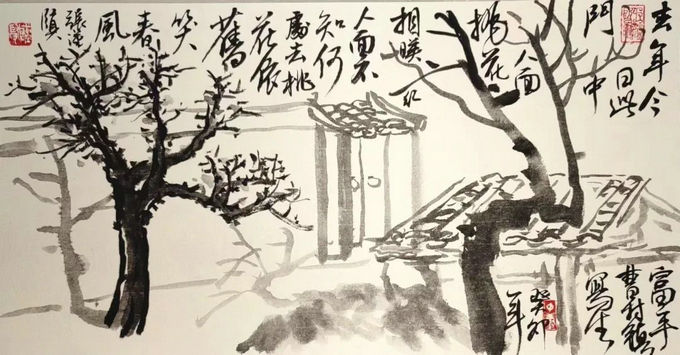 去年今
日此
門中
人面
桃花
相映紅
人面不
知何
處去桃
花依
舊
笑
春
風
富平
曹村鎮
寫生
癸卯
年